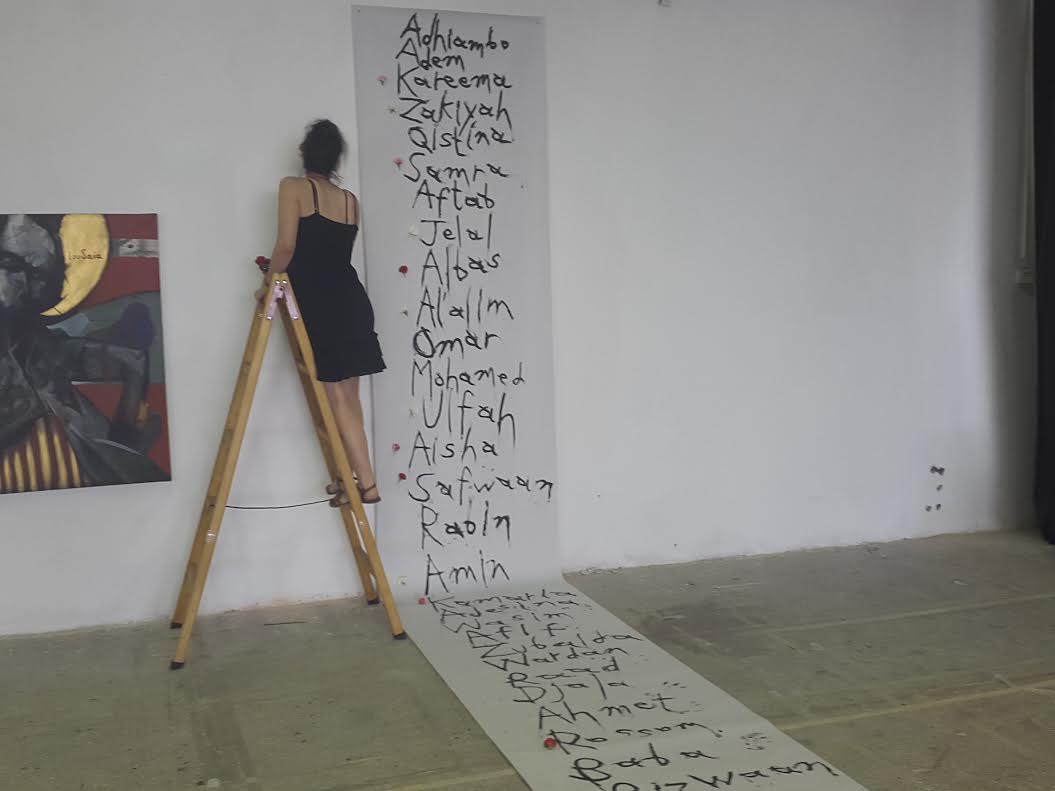 Adhiambo
Adem
Kareema
Zakiyah
Qistina
Samra
Aftab
Jelal
Albas
Al'alim
Omar
Mohamed
Ulfah
Aisha
Safwaan
Rabin
Amin
Kamaria
Jasim
Afif
Nubaida
Wardan
Raad
Djaja
Ahmet
Rossom
Baba
Rizwaan